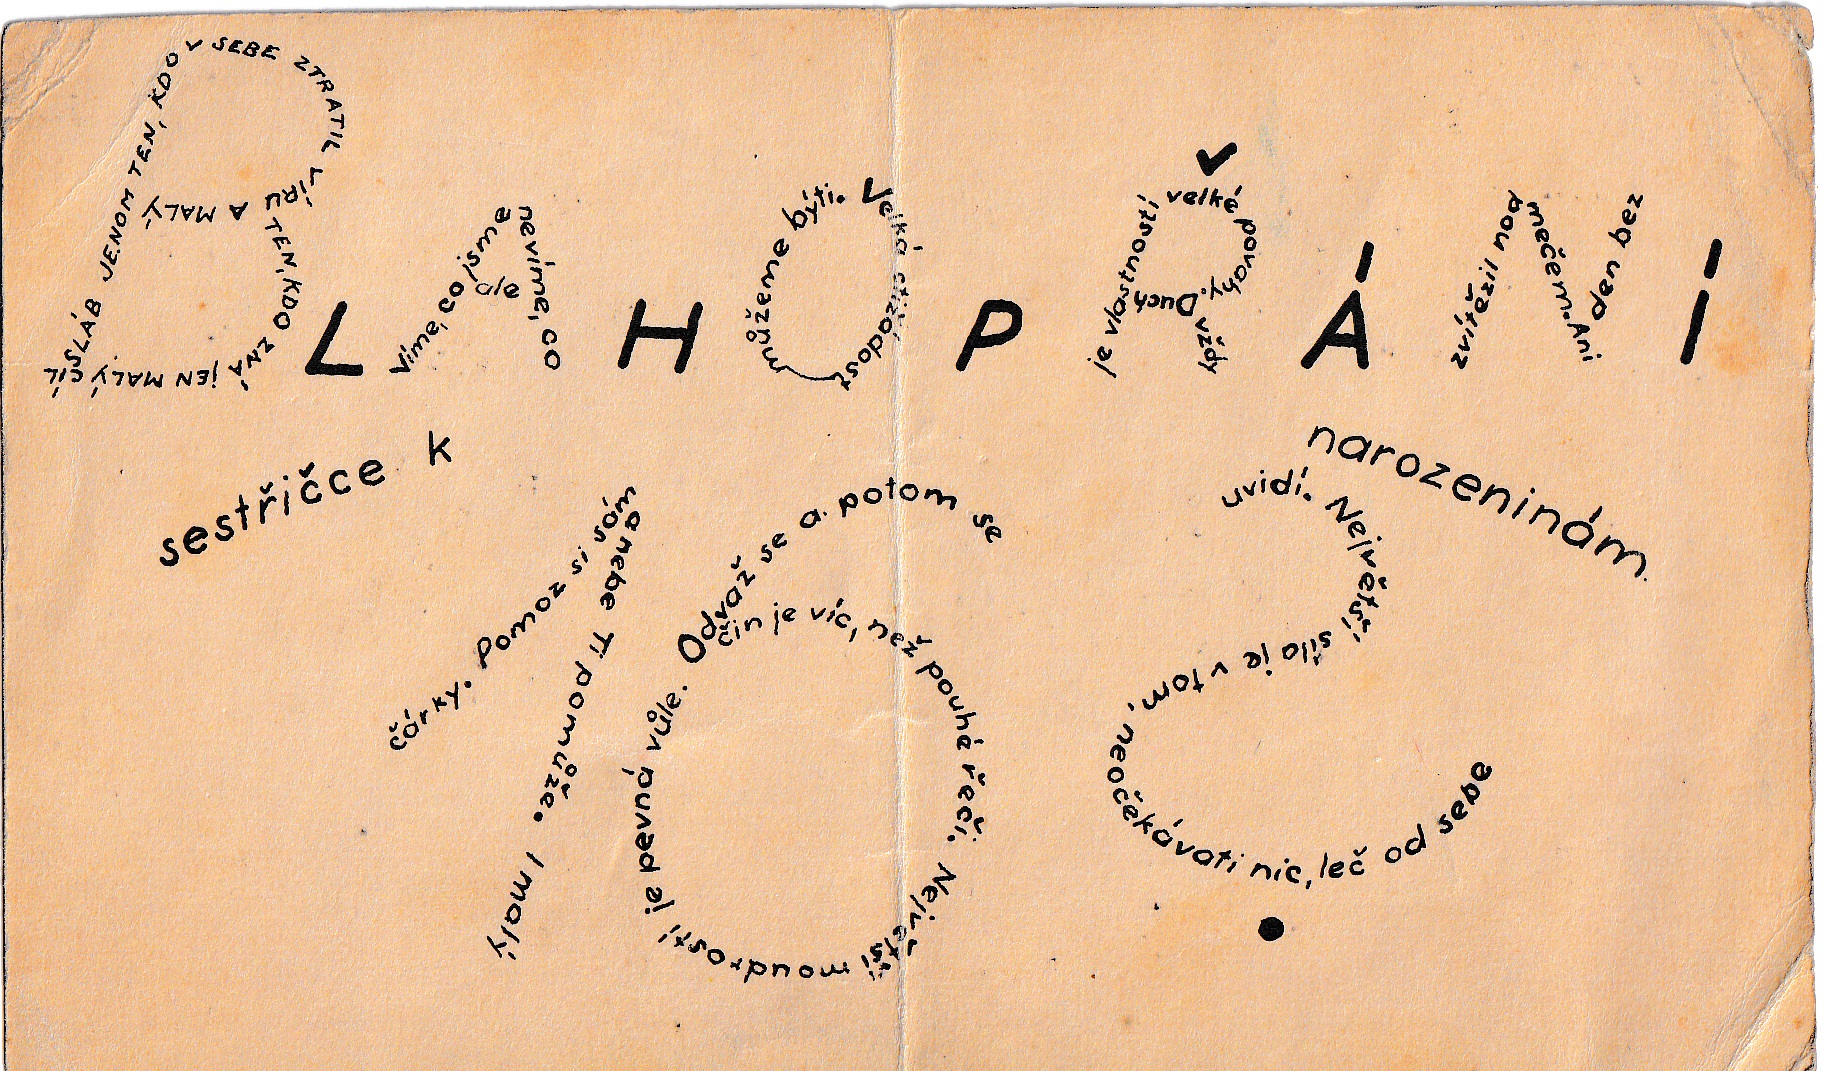 SLÁB JENOM TEN, KDO V SEBE ZTRATIL VÍRU A MALÝ TEN, KDO ZNÁ JEN MALÝ CÍL
L
Víme, co jsme ale nevíme, co
H
můžeme býti. Velká ctižádost
P
je vlastností velké povahy. Duch vždy
Á
zvítězil nad mečem. Ani den bez
Í
sestřičce k narozeninám
čárky. Pomoz si sám a nebe Ti pomůže. I malý
čin je víc, než pouhé řeči. Největší moudrostí je pevná vůle. Odvaž se a potom se
uvidí. Největší síla je v tom, neočekávati nic, leč od sebe